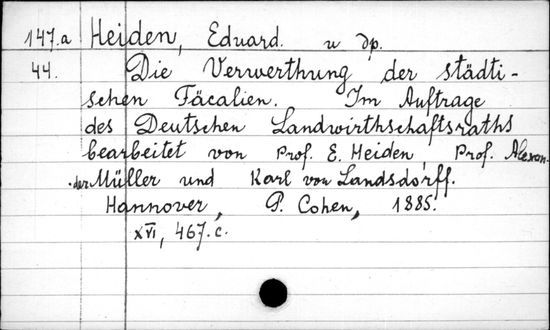 147.a Heiden, Eduard. и др.
44. Die Verwerthung der städti-
schen Fäcalien. Im Auftrage
des Deutschen Landwirthschaftsraths
bearbeitet von Prof. E. Heiden, Prof. Alexan-
der Müller und Karl von Landsdorff.
Hannover, P. Cohen, 1885.
XVI, 467.c.